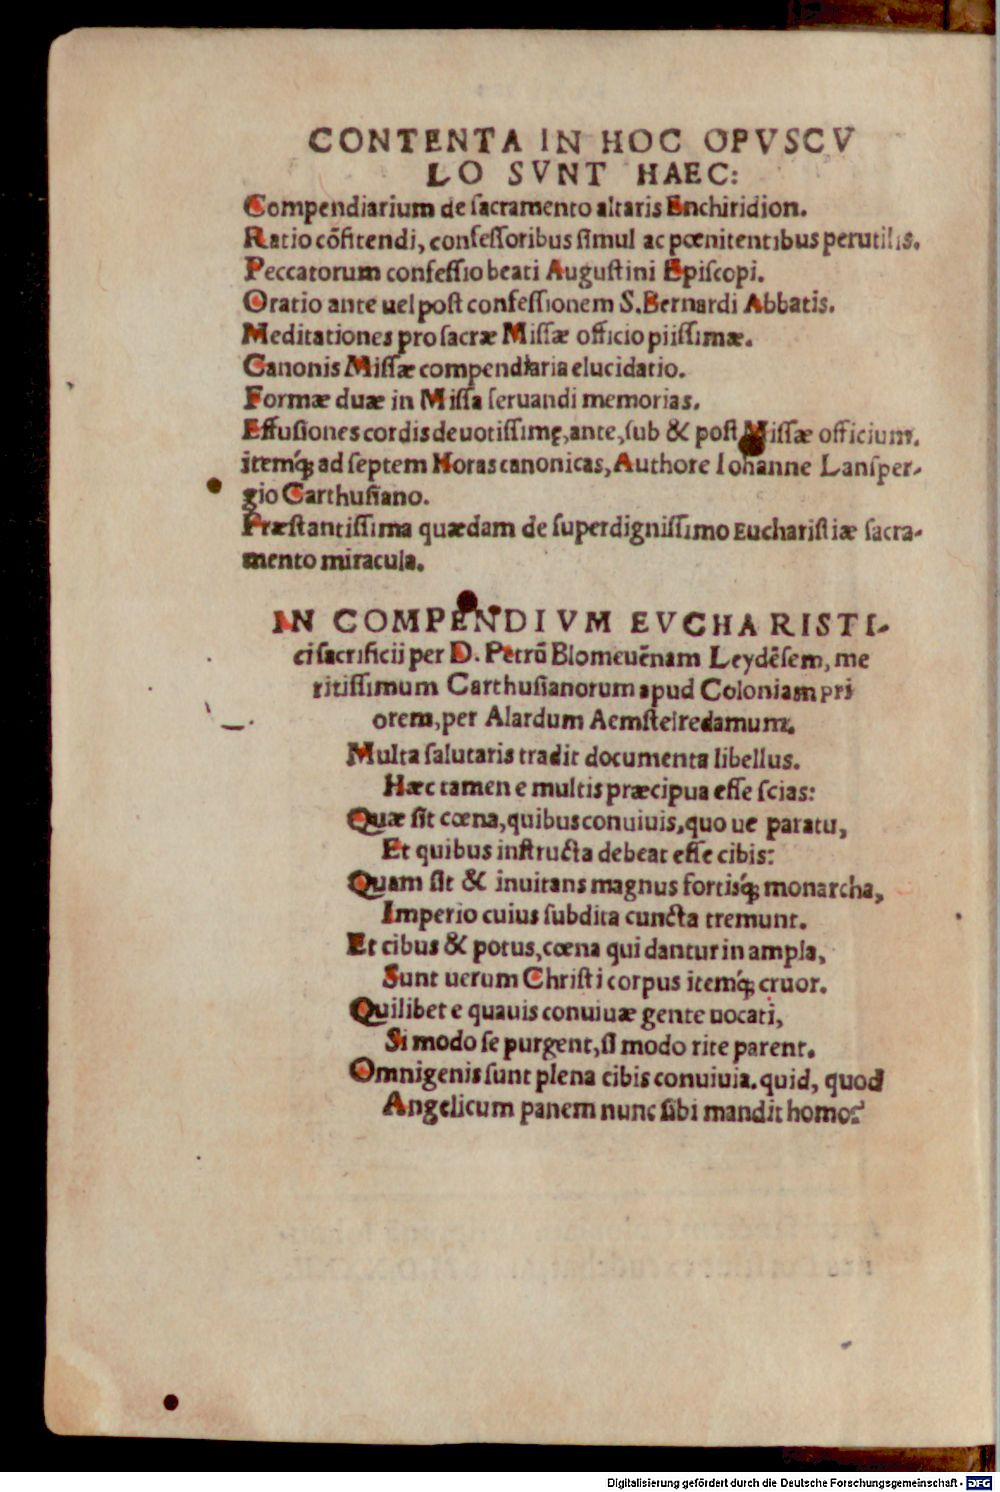 CONTENTA IN HOC OPVSCV
LO SVNT HAEC:
Compendiarium de sacramento altaris Enchiridion.
Ratio cõfitendi, confessoribus simul ac pœnitentibus perutilis.
Peccatorum confessio beati Augustini Episcopi.
Oratio ante uel post confessionem S. Bernardi Abbatis.
Meditationes pro sacræ Missæ officio piissimæ.
Canonis Missæ compendiaria elucidatio.
Formæ duæ in Missa seruandi memorias.
Effusiones cordis deuotissimę, ante, sub & post Missæ officium.
itemq́ꝫ ad septem Horas canonicas, Authore Iohanne Lansper-
gio Carthusiano.
Præstantissima quædam de superdignissimo Eucharistiæ sacra-
mento miracula.
IN COMPENDIVM EVCHARISTI-
ci sacrificii per D. Petrũ Blomeuẽnam Leydẽsem, me
ritissimum Carthusianorum apud Coloniam pri
orem, per Alardum Aemstelredamum.
Multa salutaris tradit documenta libellus.
Hæc tamen e multis præcipua esse scias:
Quæ sit cœna, quibus conuiuis, quo ue paratu,
Et quibus instructa debeat esse cibis:
Quam sit & inuitans magnus fortisq́ꝫ monarcha,
Imperio cuius subdita cuncta tremunt.
Et cibus & potus, cœna qui dantur in ampla,
Sunt uerum Christi corpus itemq́ꝫ cruor.
Quilibet e quauis conuiuæ gente uocati,
Si modo se purgent, si modo rite parent.
Omnigenis sunt plena cibis conuiuia. quid, quod
Angelicum panem nunc sibi mandit homo?
Digitalisierung gefördert durch die Deutsche Forschungsgemeinschaft - DFG